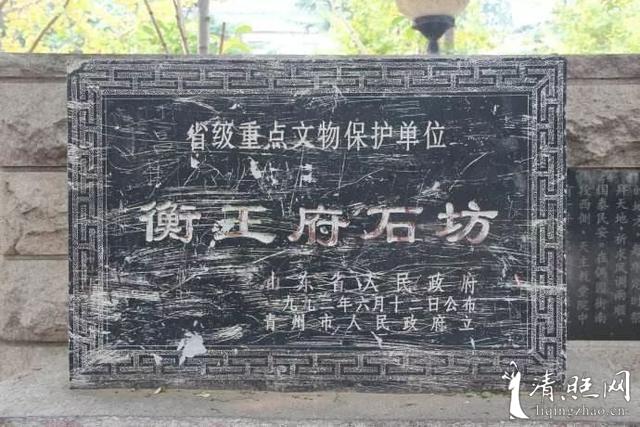 省级重点文物保护单位
衡王府石坊
山东省人民政府
一九九二年六月十二日公布
青州市人民政府立
清照网
liqingzhao.cn